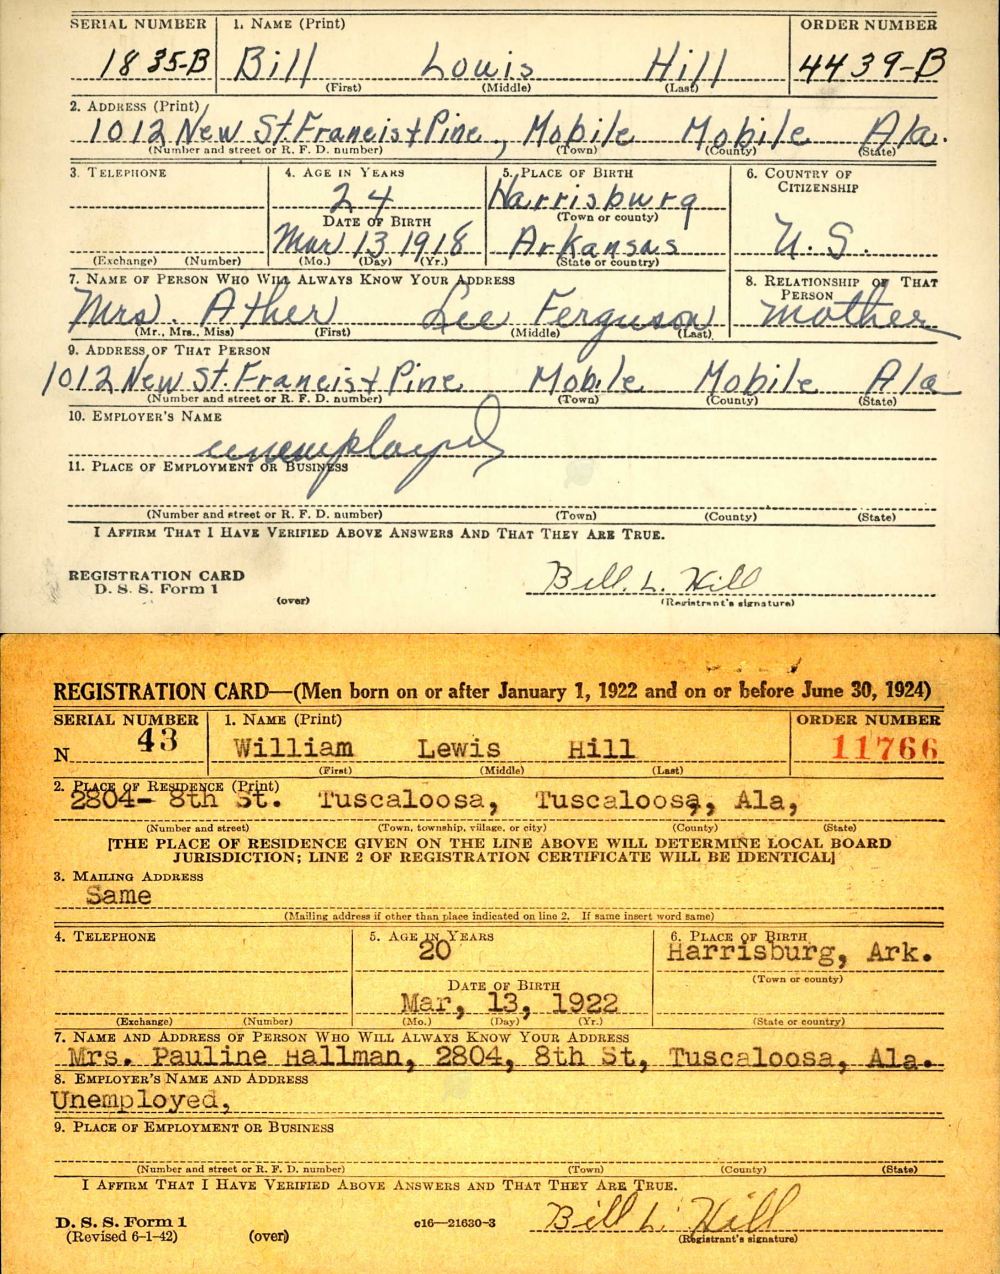 SERIAL NUMBER 1. NAME (Print) ORDER NUMBER
1835-B Bill Louis Hill 4439-B
(First) (Middle) (Last)
2. ADDRESS (Print)
1012 New St. Francis + Pine, Mobile Mobile Ala.
(Number and street or R. F. D. number) (Town) (County) (State)
3. TELEPHONE 4. AGE IN YEARS 5. PLACE OF BIRTH 6. COUNTRY OF
CITIZENSHIP
24 Harrisburg
DATE OF BIRTH (Town or county)
Mar 13 1918 Arkansas U. S.
(Exchange) (Number) (Mo.) (Day) (Yr.) (State or country)
7. NAME OF PERSON WHO WILL ALWAYS KNOW YOUR ADDRESS 8. RELATIONSHIP OF THAT
PERSON
Mrs. Ather Lee Ferguson mother
(Mr., Mrs., Miss) (First) (Middle) (Last)
9. ADDRESS OF THAT PERSON
1012 New St. Francis + Pine Mobile Mobile Ala
(Number and street or R. F. D. number) (Town) (County) (State)
10. EMPLOYER'S NAME
unemployed
11. PLACE OF EMPLOYMENT OR BUSINESS
(Number and street or R. F. D. number) (Town) (County) (State)
I AFFIRM THAT I HAVE VERIFIED ABOVE ANSWERS AND THAT THEY ARE TRUE.
REGISTRATION CARD
D. S. S. Form 1 Bill. L. Hill
(over) (Registrant's signature)
REGISTRATION CARD—(Men born on or after January 1, 1922 and on or before June 30, 1924)
SERIAL NUMBER 1. NAME (Print) ORDER NUMBER
N 43 William Lewis Hill 11766
(First) (Middle) (Last)
2. PLACE OF RESIDENCE (Print)
2804- 8th St. Tuscaloosa, Tuscaloosa, Ala,
(Number and street) (Town, township, village, or city) (County) (State)
[THE PLACE OF RESIDENCE GIVEN ON THE LINE ABOVE WILL DETERMINE LOCAL BOARD
JURISDICTION; LINE 2 OF REGISTRATION CERTIFICATE WILL BE IDENTICAL]
3. MAILING ADDRESS
Same
(Mailing address if other than place indicated on line 2. If same insert word same)
4. TELEPHONE 5. AGE IN YEARS 6. PLACE OF BIRTH
20 Harrisburg, Ark.
DATE OF BIRTH (Town or county)
Mar, 13, 1922
(Exchange) (Number) (Mo.) (Day) (Yr.) (State or country)
7. NAME AND ADDRESS OF PERSON WHO WILL ALWAYS KNOW YOUR ADDRESS
Mrs. Pauline Hallman, 2804, 8th St, Tuscaloosa, Ala.
8. EMPLOYER'S NAME AND ADDRESS
Unemployed,
9. PLACE OF EMPLOYMENT OR BUSINESS
(Number and street or R. F. D. number) (Town) (County) (State)
I AFFIRM THAT I HAVE VERIFIED ABOVE ANSWERS AND THAT THEY ARE TRUE.
D. S. S. Form 1 c16—21630-3 Bill L. Hill
(Revised 6-1-42) (over) (Registrant's signature)